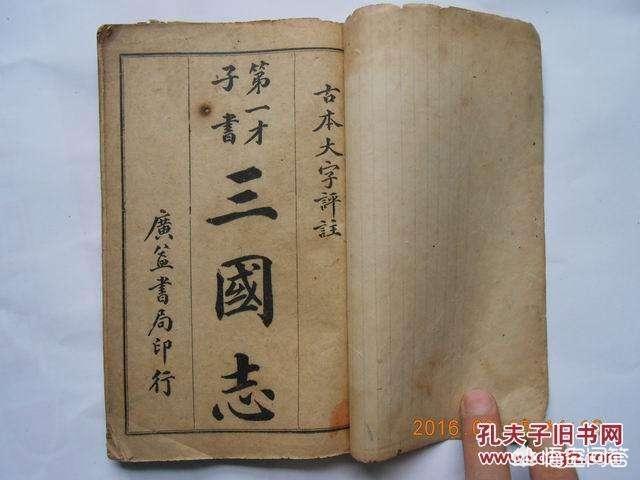 古本大字評註
第一才
子書
三國志
廣益書局印行
2016
孔夫子旧书网
悟空问答